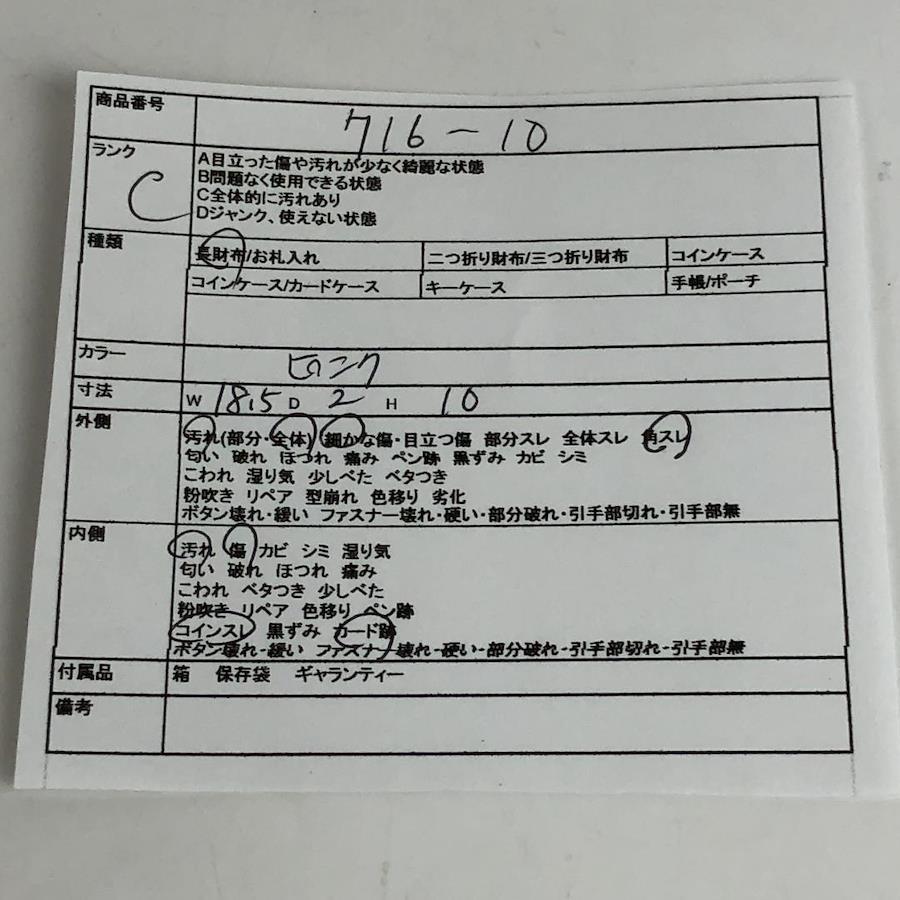 商品番号 716-10
ランク C
A目立った傷や汚れが少なく綺麗な状態
B問題なく使用できる状態
C全体的に汚れあり
Dジャンク、使えない状態
種類
長財布/お札入れ 二つ折り財布/三つ折り財布 コインケース
コインケース/カードケース キーケース 手帳/ポーチ
カラー ピンク
寸法 W 18,5 D 2 H 10
外側
汚れ(部分・全体) 細かな傷・目立つ傷 部分スレ 全体スレ 角スレ
匂い 破れ ほつれ 痛み ペン跡 黒ずみ カビ シミ
こわれ 湿り気 少しべた ベタつき
粉吹き リペア 型崩れ 色移り 劣化
ボタン壊れ・緩い ファスナー壊れ・硬い・部分破れ・引手部切れ・引手部無
内側
汚れ 傷 カビ シミ 湿り気
匂い 破れ ほつれ 痛み
こわれ ベタつき 少しべた
粉吹き リペア 色移り ペン跡
コインスレ 黒ずみ カード跡
ボタン壊れ・緩い ファスナー壊れ・硬い・部分破れ・引手部切れ・引手部無
付属品 箱 保存袋 ギャランティー
備考